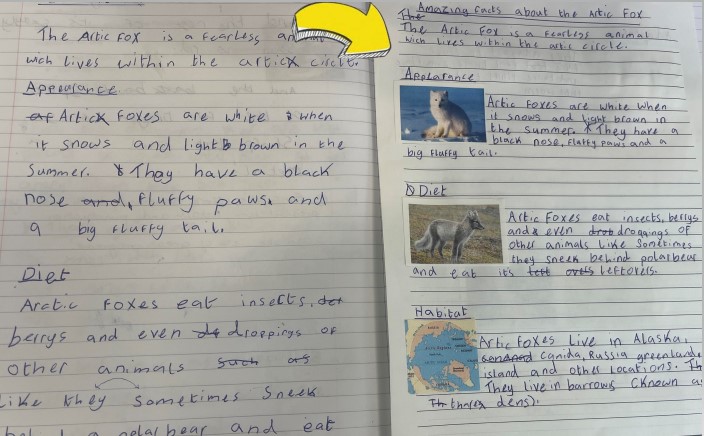 The Artic Fox is a fearless
wich lives within the artic circle.
Appearance
Artic Foxes are white when
it snows and light brown in the
Summer. They have a black
nose and, fluffy paws and
a big fluffy tail.
Diet
Arctic foxes eat insects,
berrys and even droppings of
other animals such as
Like they sometimes sneek
a polar bear and eat
The Amazing facts about the Artic Fox
The Artic Fox is a fearless animal
wich lives within the artic circle.
Appearance
Artic Foxes are white when
it snows and light brown in
the summer. They have a
black nose, flaffy paws and a
big fluffy tail.
Diet
Artic Foxes eat insects, berrys
and even droppings of
other animals like Sometimes
they sneek behind polar bear
and eat it's leftovers.
Habitat
Artic Foxes live in Alaska,
canida, Russia greenland
island and other locations.
They live in barrows (known as
dens).